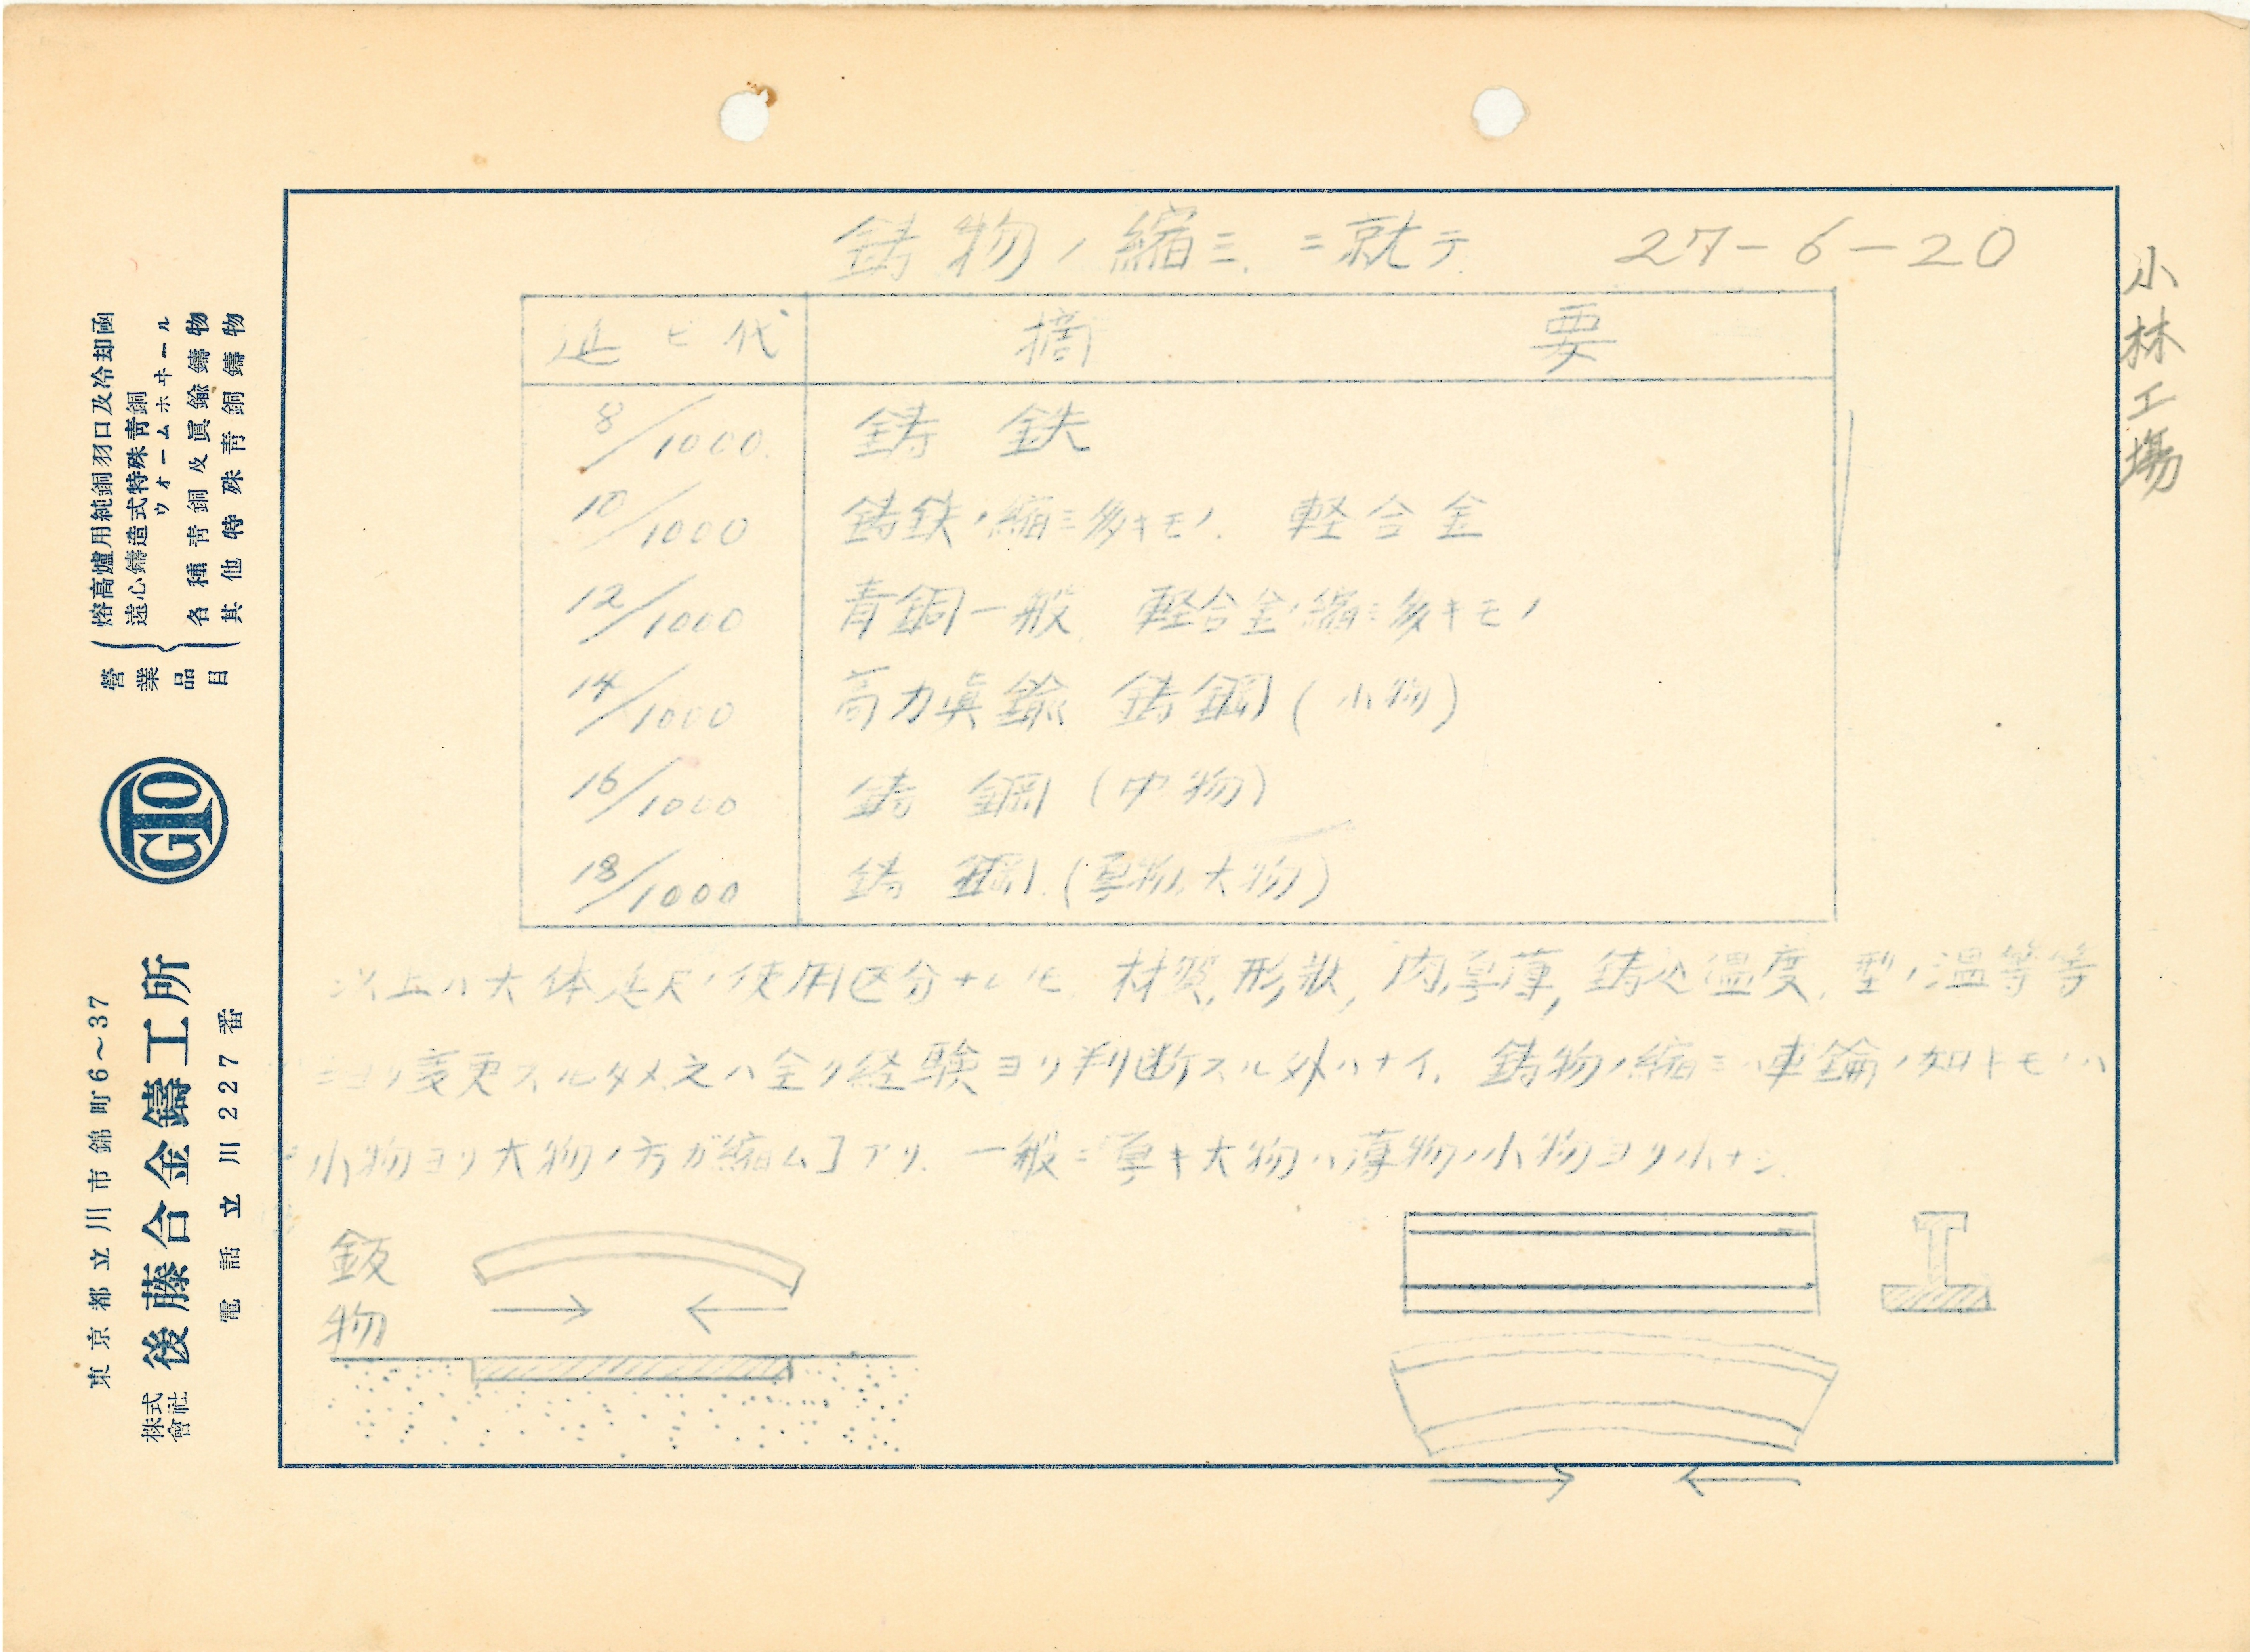 鋳物ノ縮ミニ就テ 27-6-20
小林工場
延ビ代 摘要
8/1000 鋳鉄
10/1000 鋳鉄ノ縮ミ多キモノ 軽合金
12/1000 青銅一般 軽合金ノ縮ミ多キモノ
14/1000 高力眞鍮 鋳鋼(小物)
16/1000 鋳鋼(中物)
18/1000 鋳鋼(厚物,大物)
以上ハ大体延尺ノ使用区分ナレ共 材質,形状,肉厚薄,鋳込温度,型ノ温等等
ニヨリ変更スルタメ之ハ全ク経験ヨリ判断スル外ハナイ. 鋳物ノ縮ミハ車錀ノ如キモノハ
小物ヨリ大物ノ方ガ縮ム┐アリ. 一般ニ厚キ大物ハ薄物ノ小物ヨリ小ナシ.
鈑物
營業品目
熔高爐用純銅羽口及冷却函
遠心鑄造式特殊靑銅
ウォームホヰール
各種靑銅及眞鍮鑄物
其他特殊靑銅鑄物
GTO
東京都立川市錦町6~37
株式會社 後藤合金鑄工所
電話 立川227番